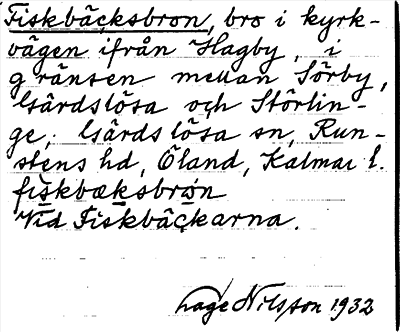 Fiskbäcksbron, bro i kyrk-
vägen ifrån Hagby, i
gränsen mellan Sörby,
Gärdslösa och Störlin-
ge, Gärdslösa sn, Run-
stens hd, Öland, Kalmar l.
fiskbæksbrøn
Vid Fiskbäckarna.
Lage Nilsson 1932